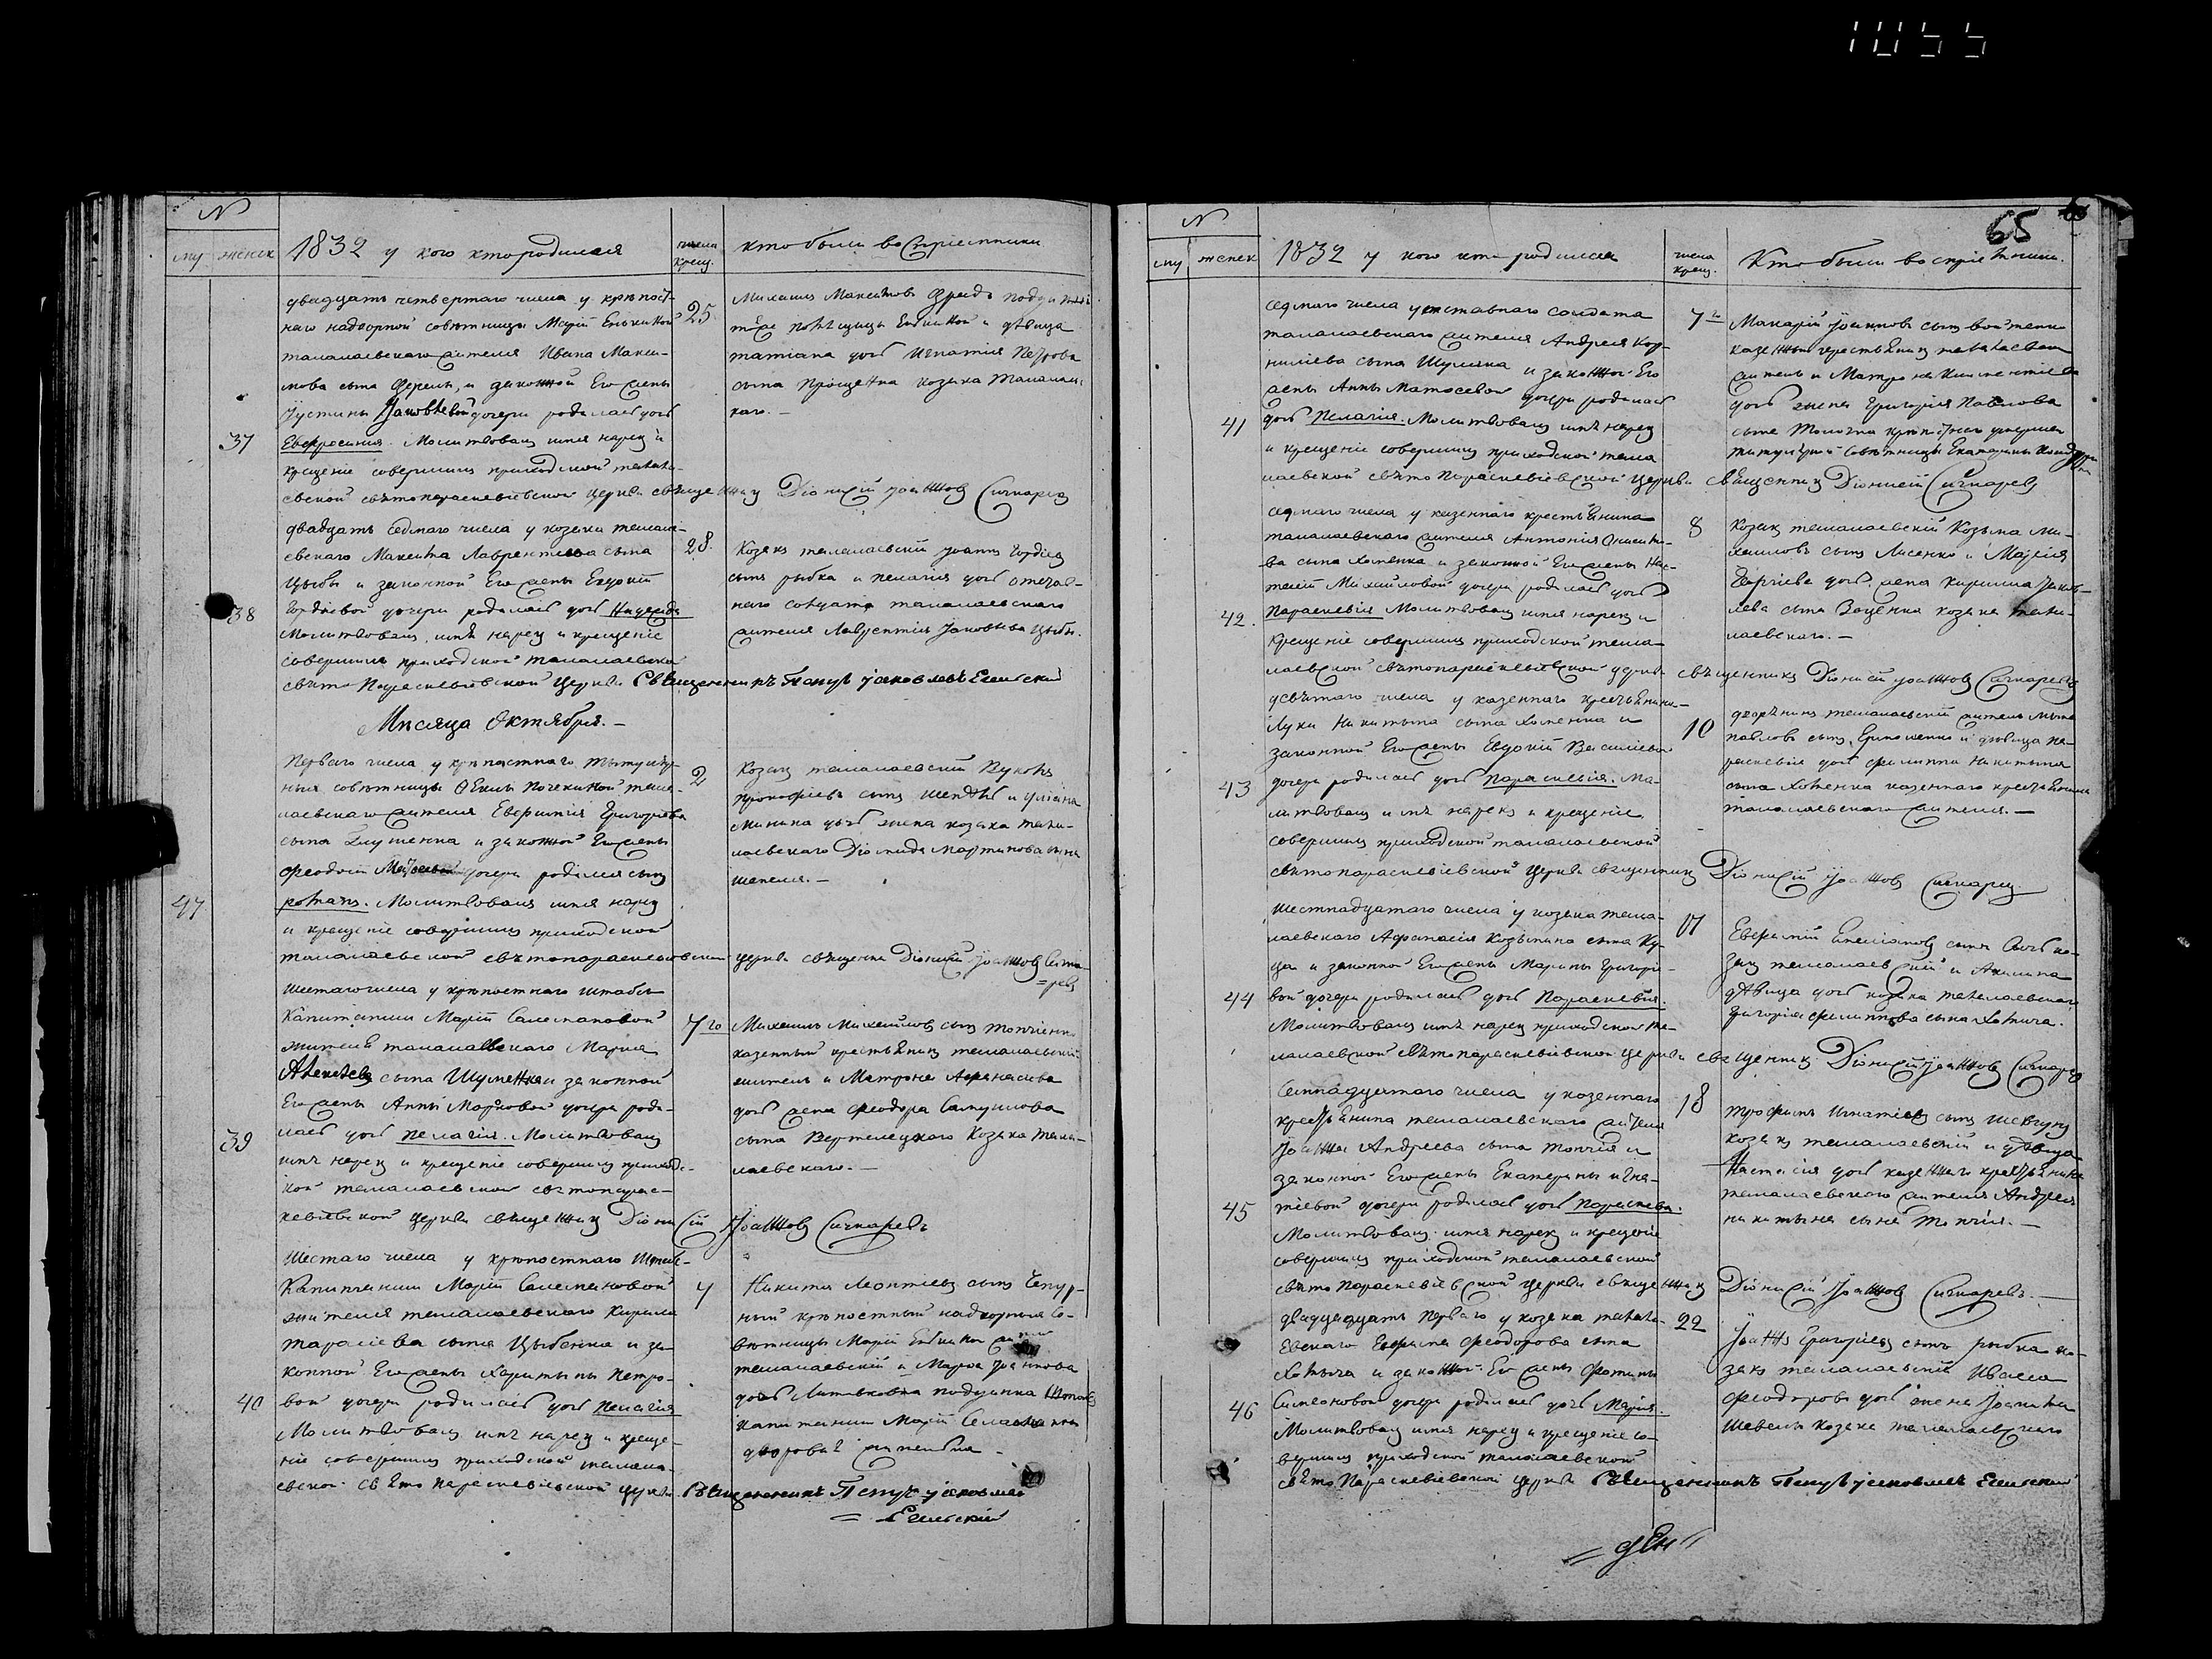 1055
N
му женск 1832 у кого кто родился числа крещ. кто были восприемники
двадцать четвертаго числа у крѣпост-
наго надворной совѣтницы Маріи
талалаевскаго жителя Ивана Макси-
мова сына и законной Его жены
Іустины Яковлевой дочери родилась дочь
37 Евфросинія. Молитвовалъ имя нарекъ и
крещеніе совершилъ приходской талала-
евской свѣтопараскевіевской церкви свѣщенникъ Діонисій Іоанновъ Сичкаревъ
25 Михаилъ Максимовъ
помѣщицы и дѣвица
татіана дочь Игнатія Петрова
сына Прощенка козака талалаевс
каго. —
двадцать седмаго числа у козака талала-
евскаго Максима Лаврентіева сына
Цыбы и законной Его жены Евдокіи
Гордіевой дочери родилась дочь Надежда
38 Молитвовалъ имѣ нарекъ и крещеніе
совершилъ приходской талалаевской
свѣто Параскевіевской церкви Свѣщенникъ Петръ Іаковлевъ Ельскій
28. Козакъ талалаевскій Іоаннъ Гордіевъ
сынъ рыбка и пелагія дочь
наго солдата талалаевскаго
жителя Лаврентія Іаковлева Цыбы.
Мѣсяца Октября. —
Перваго числа у крѣпостнаго титуляр-
ныя совѣтницы талa-
лаевскаго жителя Евфимія Григоріева
сына и законной Его жены
Феодосіи дочери родился сынъ
47 романъ. Молитвовалъ имя нарекъ
и крещеніе совершилъ приходской
талалаевской свѣтопараскевіевской церкви свѣщенникъ Діонисій Іоанновъ Сичка-
=ревъ
2 Козакъ талалаевскій
прокофіевъ сынъ и уліана
Минина дочь жена козака тала-
лаевскаго Діомида Мартинова сына
шепеля. —
шестаго числа у крѣпостнаго штабсъ
Капитанши Маріи Селемановой
жителя талалаевскаго Марка
Алексѣева сына Шуменка и законной
Его жены Анны Марковой дочери роди-
39 лась дочь пелагія. Молитвовалъ
имѣ нарекъ и крещеніе совершилъ приходс-
кой талалаевской свѣтопарас-
кевіевской церкви свѣщенникъ Діонисій Іоанновъ Сичкаревъ
7го Михаилъ Михайловъ сынъ топчіенко
казенный крестьянинъ талалаевскій
житель и Матрона Афанасіева
дочь жена Феодора Самуилова
сына Вертелецкого Козака тала-
лаевскаго. —
Шестаго числа у крѣпостнаго Штабсъ-
Капитанши Маріи Селемановой
жителя талалаевскаго Кирила
тарасіева сына Цыбенка и за-
конной Его жены Харитины Петро-
40 вой дочери родилась дочь пелагія
Молитвовалъ имѣ нарекъ и креще-
ніе совершилъ приходской талала-
евской свѣто параскевіевской церкви. Свѣщенникъ Петръ Іаковлевъ
= Ельскій
7 Никита Леонтіевъ сынъ Чепур-
ный крѣпостный надворныя Со-
вѣтницы Маріи
талалаевскій и Марѳа Іоаннова
дочь Штабсъ
капитанши Маріи Селемановой
65
N
му женск 1832 у кого кто родился числа крещ. Кто были воспріемники.
седмаго числа у отставнаго солдата
талалаевскаго жителя Андрея Кор-
ниліева сына Шуляка и законной Его
жены Анны Матвеевой дочери родилась
41 дочь Пелагія. Молитвовалъ имѣ нарекъ
и крещеніе совершилъ приходской тала
лаевской свѣто Параскевіевской церкви Свѣщенникъ Діонисій Сичкаревъ
7го Макарій Іоанновъ сынъ войтенко
казенный крестьянинъ талалаевскій
житель и Матрона Климентіева
дочь жена Григорія Павлова
сына крѣпостнаго
титулярной совѣтницы Екатерины
седмаго числа у казеннаго крестьянина
талалаевскаго жителя Антонія Онисимо-
ва сына Хоменка и законной Его жены Нас-
тасіи Михайловой дочери родилась дочь
42. Параскевія Молитвовалъ имя нарекъ и
крещеніе совершилъ приходской тала-
лаевской свѣтопараскевіевской церкви свѣщенникъ Діонисій Іоанновъ Сичкаревъ
8 Козакъ талалаевскій Козьма Ми-
хайловъ сынъ Лисенко и Марія
Георгіева дочь. жена Кирилла Іаков-
лева сына Ваценка козака тала-
лаевскаго. —
девѣтаго числа у казеннаго крестьянина
Луки Никитина сына Хоменка и
законной Его жены Евдокіи Василіевой
43 дочери родилась дочь Параскевія. Мо-
литвовалъ имѣ нарекъ и крещеніе
совершилъ приходской талалаевской
свѣтопараскевіевской церкви свѣщенникъ Діонисій Іоанновъ Сичкаревъ
10 дворянинъ талалаевскій житель
павловъ сынъ, Ермоленко и дѣвица па-
раскевія дочь филиппа Никитина
сына Хоменка казеннаго крестьянина
талалаевскаго жителя. —
шестнадцатаго числа у козака тала-
лаевскаго Афанасія Козьмина сына Ку-
ца и законной Его жены Марины Григорie-
44 вой дочери родилась дочь Параскевія.
Молитвовалъ имѣ нарекъ приходской та-
лалаевской свѣтопараскевіевской церкви свѣщенникъ Діонисій Іоанновъ Сичкаревъ
17 Евфимій Емеліановъ сынъ ко-
закъ талалаевскій и Акилина
дѣвица дочь козака талалаевскаго
григорія филиппова сына Хотича.
Семнадцатаго числа у козеннаго
крестьянина талалаевскаго жителя
Іоанна Андреева сына топчія и
законной Его жены Екатерины игна-
45 тіевой дочери родилась дочь Параскева.
Молитвовалъ имя нарекъ и крещеніе
совершилъ приходской талалаевской
свѣто параскевіевской церкви свѣщенникъ Діонисій Іоанновъ Сичкаревъ. —
18 трофимъ Игнатіевъ сынъ шевгунъ
козакъ талалаевскій и дѣвица
Настасія дочь казеннаго крестьянина
талалаевскаго жителя Андрея
никитина сына топчія. —
двадцать перваго у козака талала-
евскаго Евфима Феодорова сына
Хотыча и законной Его жены Фотины
46 Симеоновой дочери родилась дочь Марія.
Молитвовалъ имя нарекъ и крещеніе со-
вершилъ приходской талалаевской
свѣто Параскевіевской церкви Свѣщенникъ Петръ Іаковлевъ Ельскій
22 Іоаннъ Григоріевъ сынъ рыбка ко-
закъ талалаевскій
Феодорова дочь жена Іоанна
Шевеля козака талалаевскаго